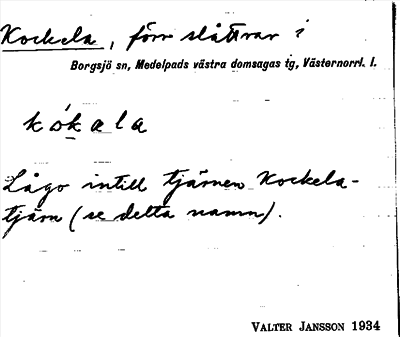 Kockela, förr slåttrar i
Borgsjö sn, Medelpads västra domsagas tg, Västernorrl. l.
kókala
Lågo intill tjärnen Kockela-
tjärn (se detta namn).
VALTER JANSSON 1934